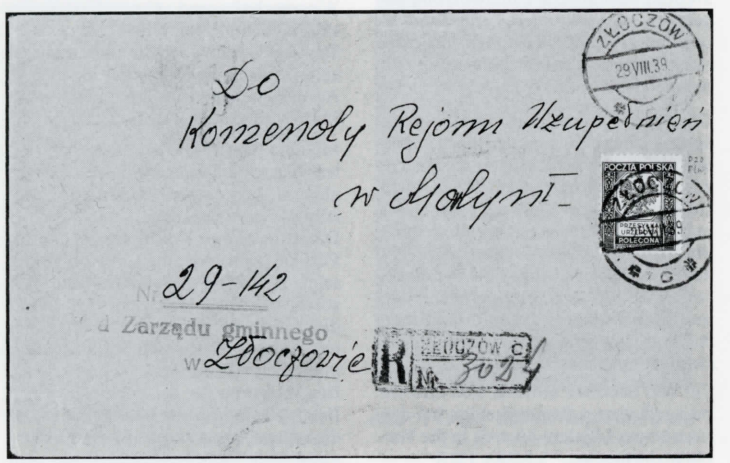 ZŁOCZÓW
29 VIII.39
Do
Komendy Rejonu Uzupełnień
w
POCZTA POLSKA
ZŁOCZÓW
PRZESYŁKA
URZĘDOWA
POLECONA
* C *
Nr. 29-142
d Zarządu gminnego
w Złoczowie
R ZŁOCZÓW C
Nr. 3024